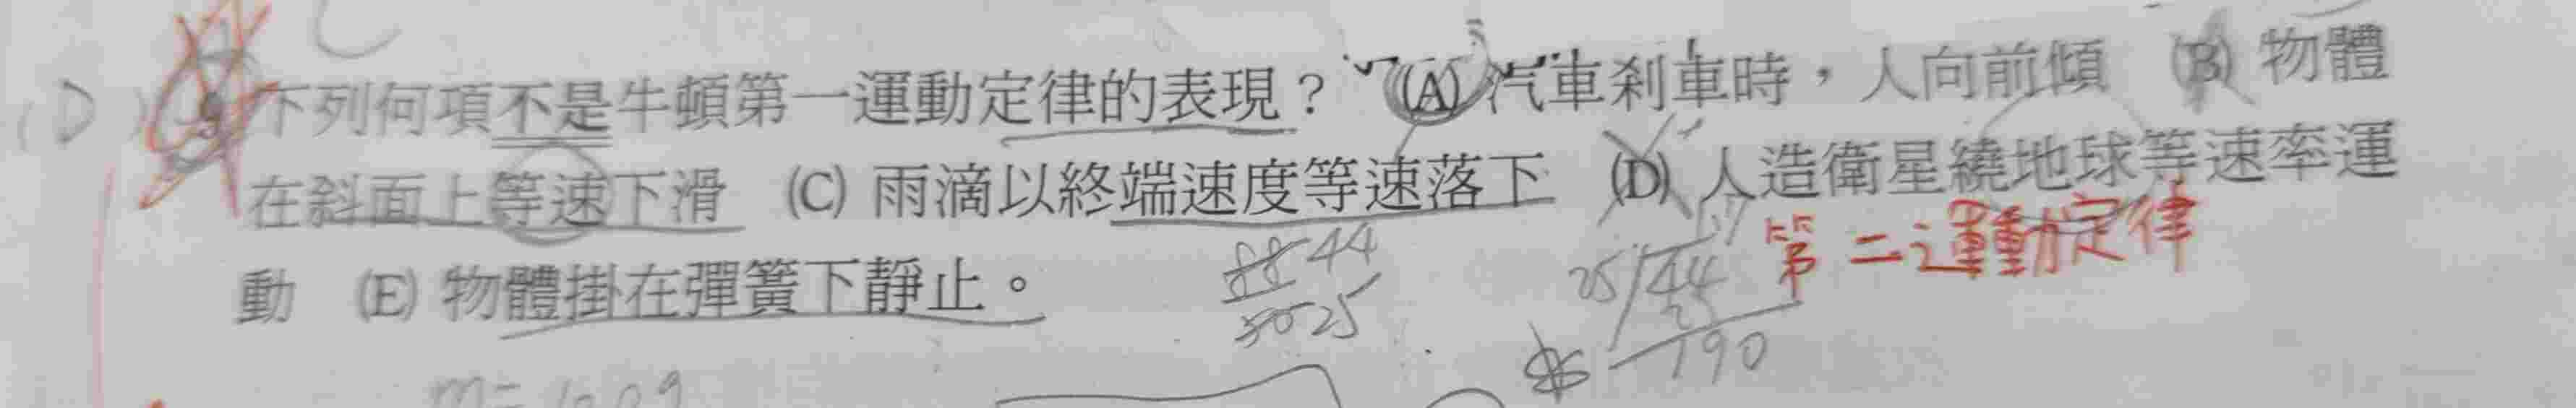 (D) 9. 下列何項不是牛頓第一運動定律的表現? (A) 汽車剎車時,人向前傾 (B) 物體
在斜面上等速下滑 (C) 雨滴以終端速度等速落下 (D) 人造衛星繞地球等速率運
第二運動定律
動 (E) 物體掛在彈簧下靜止。
88 44
50 25
25 44
25
190